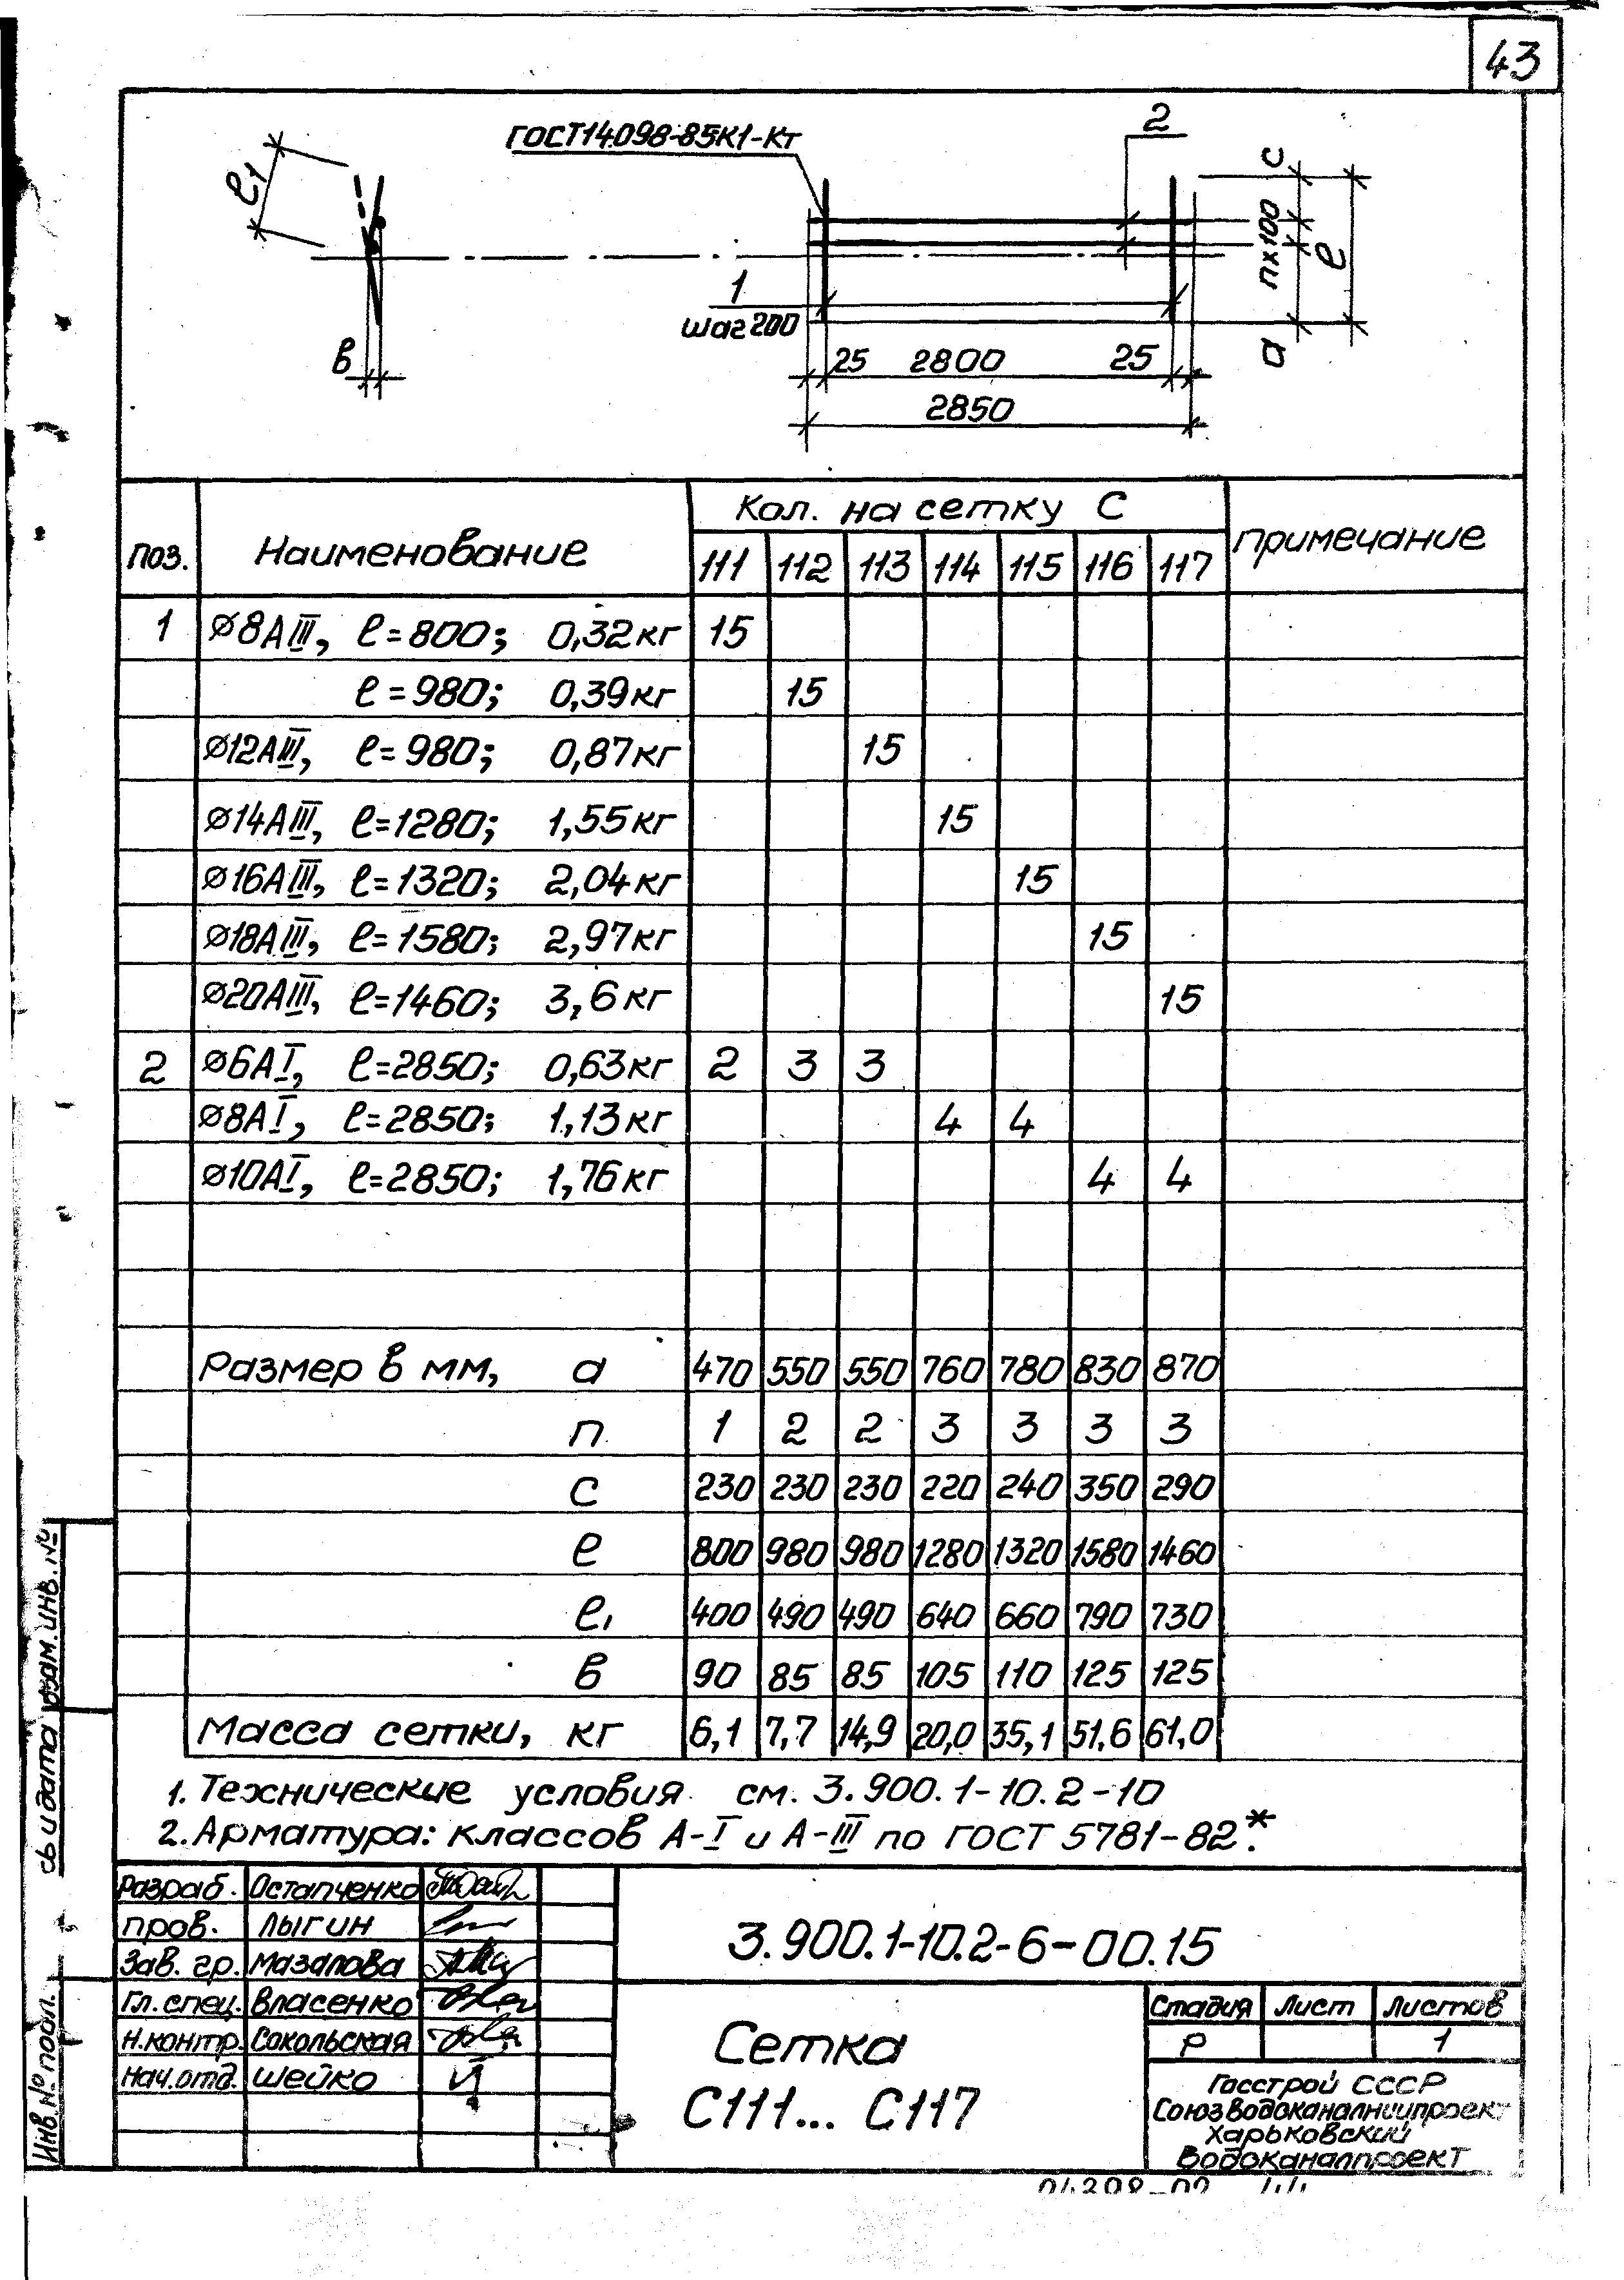 43
ГОСТ14098-85К1-Кт
2
с
пх100
ℓ
а
ℓ1
в
1
шаг200
25 2800 25
2850
Поз. Наименование Кол. на сетку С Примечание
111 112 113 114 115 116 117
1 ∅8АIII, ℓ=800; 0,32кг 15
ℓ=980; 0,39кг 15
∅12АIII, ℓ=980; 0,87кг 15
∅14АIII, ℓ=1280; 1,55кг 15
∅16АIII, ℓ=1320; 2,04кг 15
∅18АIII, ℓ=1580; 2,97кг 15
∅20АIII, ℓ=1460; 3,6кг 15
2 ∅6АI, ℓ=2850; 0,63кг 2 3 3
∅8АI, ℓ=2850; 1,13кг 4 4
∅10АI, ℓ=2850; 1,76кг 4 4
Размер в мм, а 470 550 550 760 780 830 870
п 1 2 2 3 3 3 3
с 230 230 230 220 240 350 290
ℓ 800 980 980 1280 1320 1580 1460
ℓ1 400 490 490 640 660 790 730
в 90 85 85 105 110 125 125
Масса сетки, кг 6,1 7,7 14,9 20,0 35,1 51,6 61,0
1. Технические условия см. 3.900.1-10.2-10
2. Арматура: классов А-I и А-III по ГОСТ 5781-82*.
Разраб. Остапченко
Пров. Лыгин
Зав. гр. Мазалова
Гл. спец. Власенко
Н.контр. Сокольская
Нач.отд. Шейко
3.900.1-10.2-6-00.15
Сетка
С111... С117
Стадия Лист Листов
Р 1
Госстрой СССР
Союзводоканалниипроект
Харьковский
Водоканалпроект
Взам.инв.№
и дата
Инв.№подл.